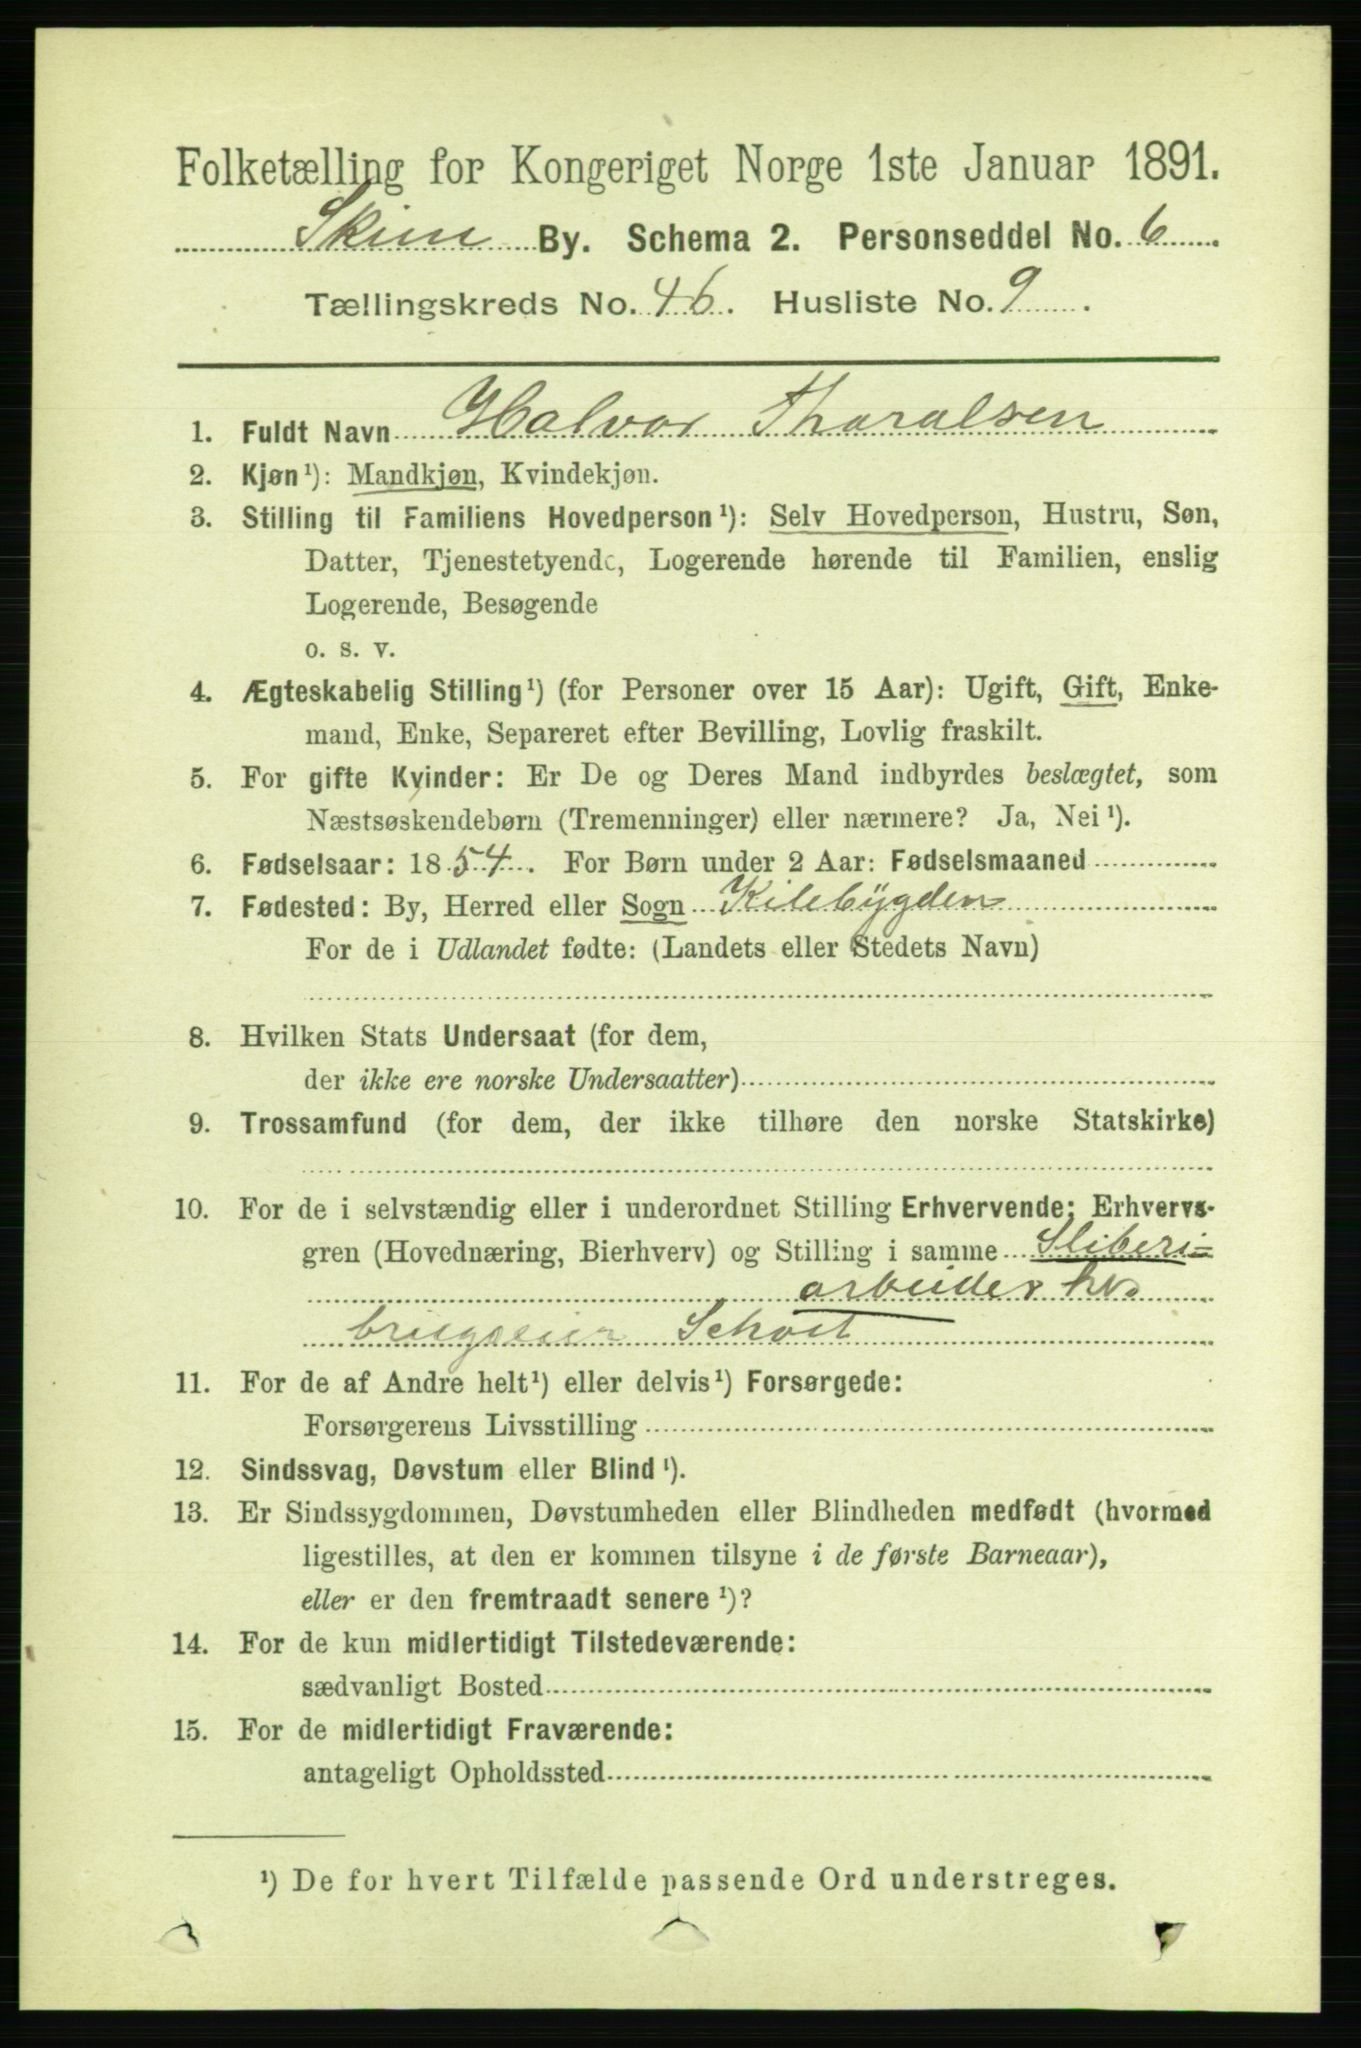 Folketælling for Kongeriget Norge 1ste Januar 1891.
Skien By. Schema 2. Personseddel No. 6
Tællingskreds No. 46. Husliste No. 9.
1. Fuldt Navn Halvor Tharalsen
2. Kjøn¹): Mandkjøn, Kvindekjøn.
3. Stilling til Familiens Hovedperson¹): Selv Hovedperson, Hustru, Søn,
Datter, Tjenestetyende, Logerende hørende til Familien, enslig
Logerende, Besøgende
o. s. v.
4. Ægteskabelig Stilling¹) (for Personer over 15 Aar): Ugift, Gift, Enke-
mand, Enke, Separeret efter Bevilling, Lovlig fraskilt.
5. For gifte Kvinder: Er De og Deres Mand indbyrdes beslægtet, som
Næstsøskendebørn (Tremenninger) eller nærmere? Ja, Nei¹).
6. Fødselsaar: 1854. For Børn under 2 Aar: Fødselsmaaned
7. Fødested: By, Herred eller Sogn Kilebygden
For de i Udlandet fødte: (Landets eller Stedets Navn)
8. Hvilken Stats Undersaat (for dem,
der ikke ere norske Undersaatter)
9. Trossamfund (for dem, der ikke tilhøre den norske Statskirke)
10. For de i selvstændig eller i underordnet Stilling Erhvervende: Erhvervs-
gren (Hovednæring, Bierhverv) og Stilling i samme Sliberi-
arbeider hos
brugseier
11. For de af Andre helt¹) eller delvis¹) Forsørgede:
Forsørgerens Livsstilling
12. Sindssvag, Døvstum eller Blind¹).
13. Er Sindssygdommen, Døvstumheden eller Blindheden medfødt (hvormed
ligestilles, at den er kommen tilsyne i de første Barneaar),
eller er den fremtraadt senere¹)?
14. For de kun midlertidigt Tilstedeværende:
sædvanligt Bosted
15. For de midlertidigt Fraværende:
antageligt Opholdssted
¹) De for hvert Tilfælde passende Ord understreges.